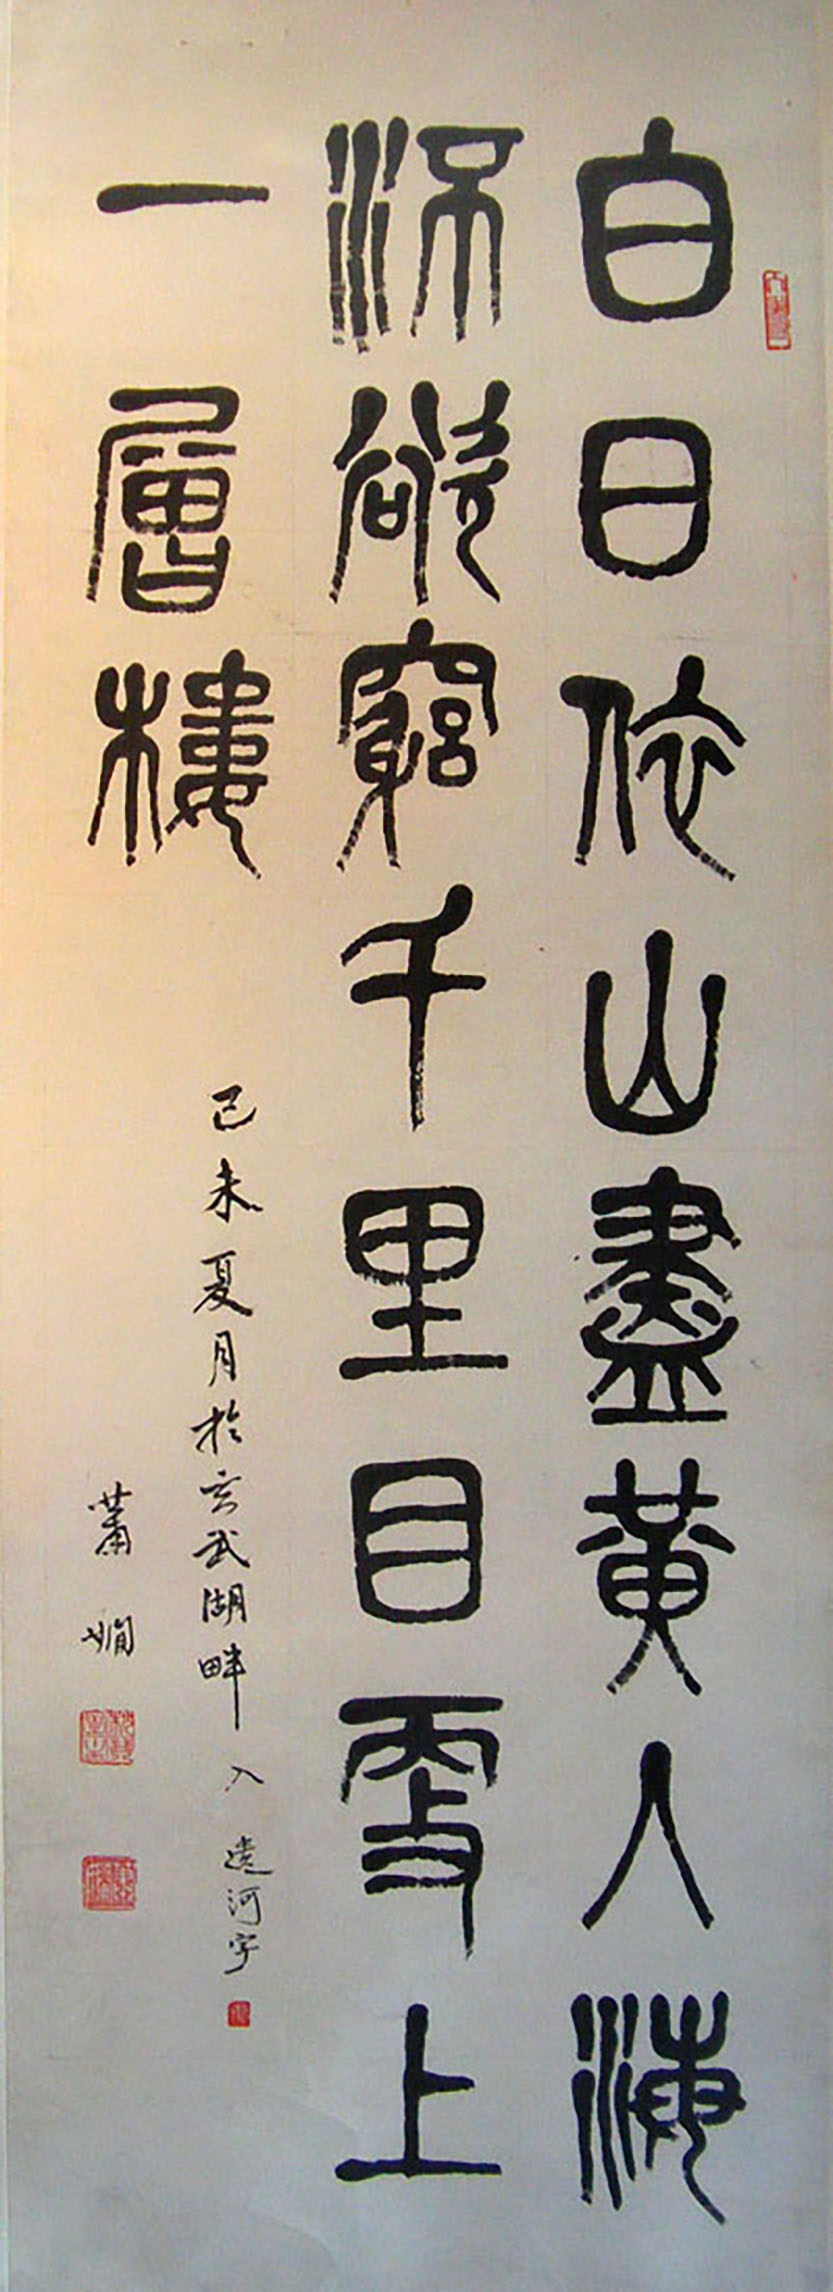 白日依山盡黃入海
流欲窮千里目更上
一層樓
己未夏月於玄武湖畔 入 遺河字
蕭嫻